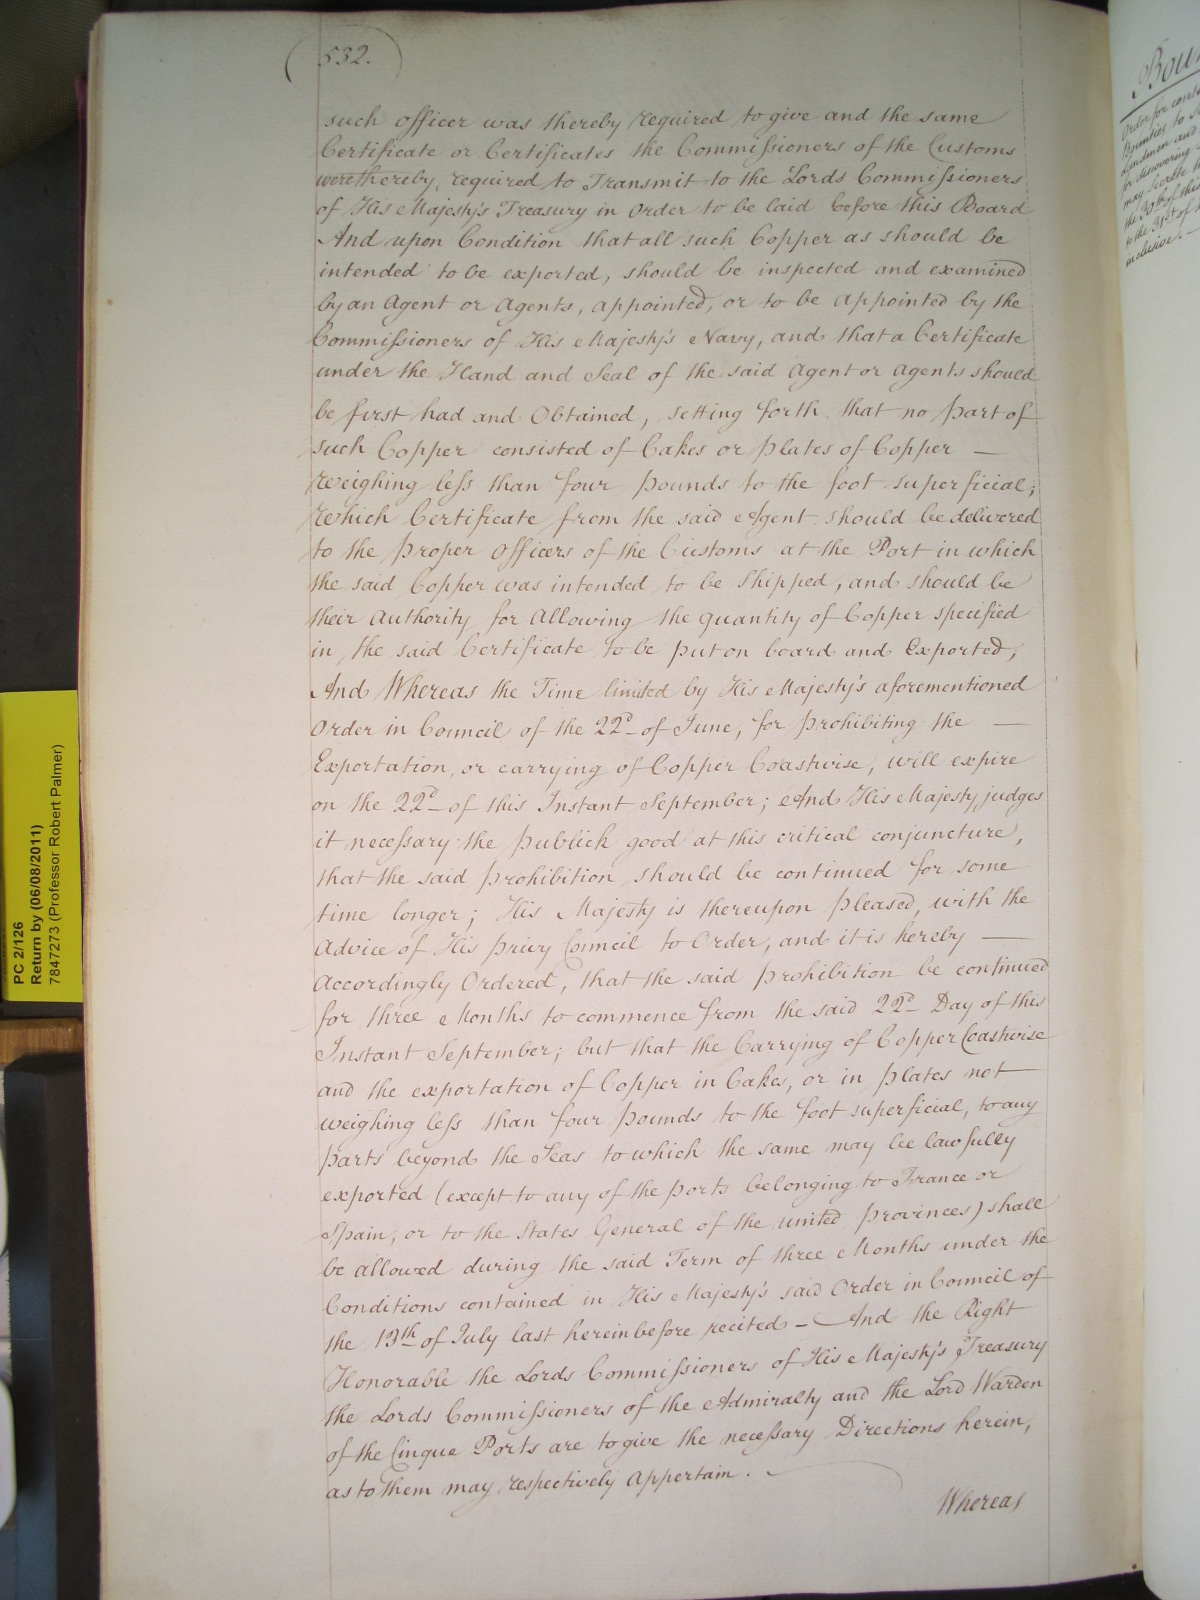 532.
such officer was thereby required to give and the same
Certificate or Certificates the Commissioners of the Customs
were thereby required to Transmit to the Lords Commissioners
of His Majesty's Treasury in Order to be laid before this Board
And upon Condition that all such Copper as should be
intended to be exported, should be inspected and examined
by an Agent or Agents, appointed, or to be appointed by the
Commissioners of His Majesty's Navy, and that a Certificate
under the Hand and Seal of the said Agent or Agents should
be first had and Obtained, setting forth that no part of
such Copper consisted of Cakes or plates of Copper —
weighing less than four pounds to the foot superficial;
which Certificate from the said Agent should be delivered
to the proper Officers of the Customs at the Port in which
the said Copper was intended to be Shipped, and should be
their Authority for Allowing the quantity of Copper specified
in the said Certificate to be put on board and Exported;
And Whereas the Time limited by His Majesty's aforementioned
Order in Council of the 22d of June, for prohibiting the —
Exportation, or carrying of Copper Coastwise, will expire
on the 22d of this Instant September; And His Majesty judges
it necessary the publick good at this critical conjuncture,
that the said prohibition should be continued for some
time longer; His Majesty is thereupon pleased, with the
Advice of His privy Council to Order, and it is hereby —
accordingly Ordered, that the said prohibition be continued
for three Months to commence from the said 22d Day of this
Instant September; but that the Carrying of Copper Coastwise
and the exportation of Copper in Cakes, or in plates not
weighing less than four pounds to the foot superficial, to any
parts beyond the Seas to which the same may be lawfully
exported (except to any of the ports belonging to France or
Spain, or to the States General of the united provinces) shall
be allowed during the said Term of three Months under the
Conditions contained in His Majesty's said Order in Council of
the 13th of July last herein before recited — And the Right
Honorable the Lords Commissioners of His Majesty's Treasury
the Lords Commissioners of the Admiralty and the Lord Warden
of the Cinque Ports are to give the necessary Directions herein,
as to them may respectively appertain.
Whereas
PC 2/126
Return by (06/08/2011)
7847273 (Professor Robert Palmer)
Order for
Bounties to
Landsmen and
for discovering
the 30th of this
to the 31st of
inclusive.